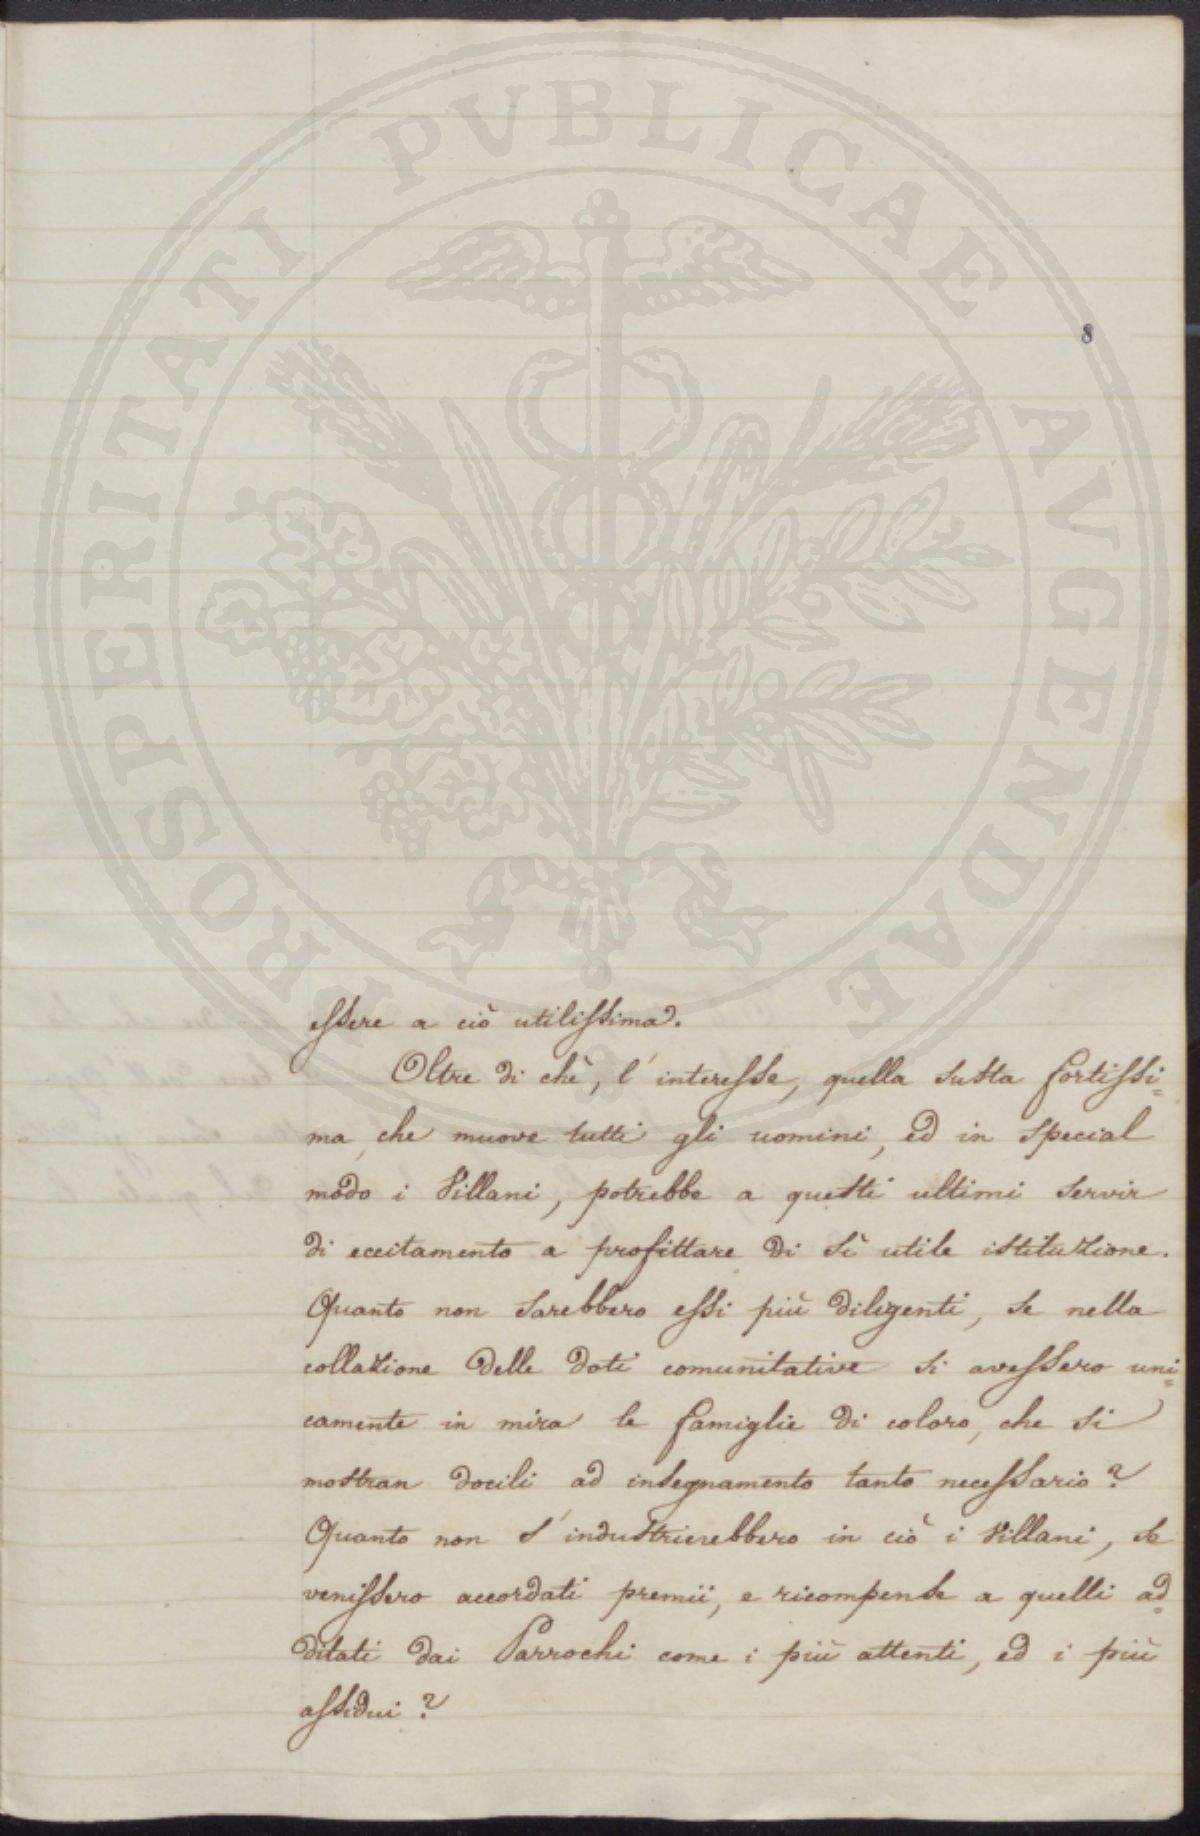 PROSPERITATI PVBLICAE AVGENDAE
8
essere a ciò utilissima.
Oltre di chè, l'interesse, quella susta fortissi=
ma, che muove tutti gli uomini, ed in special
modo i Villani, potrebbe a questi ultimi servir
di eccitamento a profittare di sì utile istituzione.
Quanto non sarebbero essi più diligenti, se nella
collazione delle doti comunitative si avessero uni=
camente in mira le famiglie di coloro, che si
mostran docili ad insegnamento tanto necessario?
Quanto non s'industrierebbero in ciò i Villani, se
venissero accordati premii, e ricompense a quelli ad=
ditati dai Parrochi come i più attenti, ed i più
assidui?